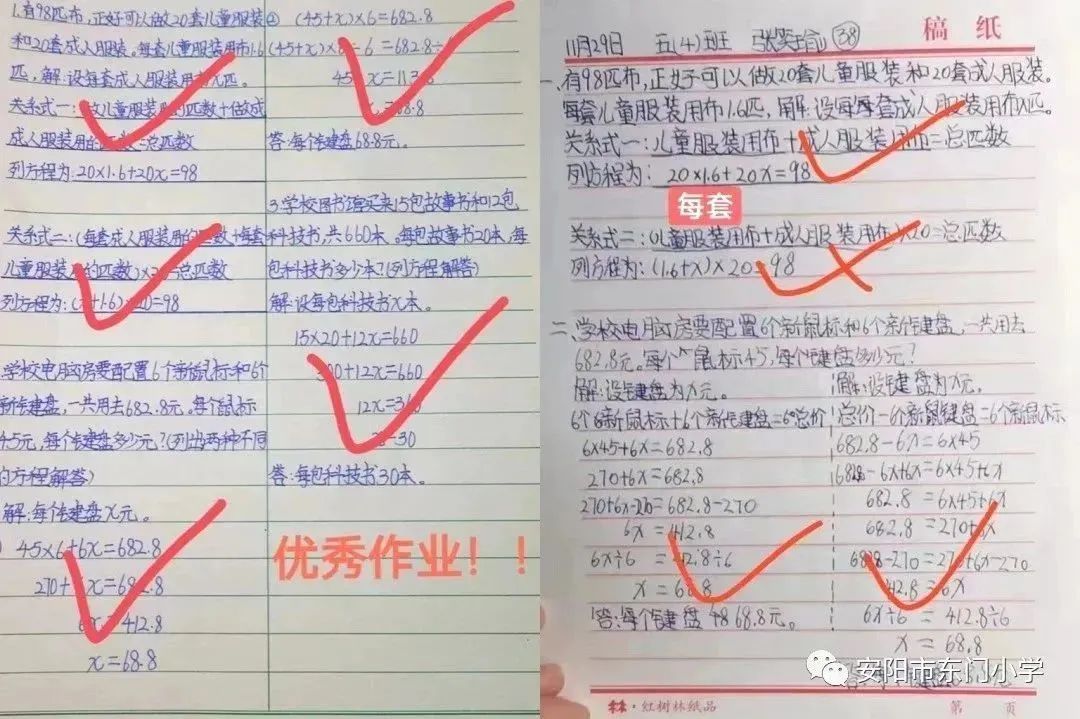 1.有98匹布,正好可以做20套儿童服装
和20套成人服装。每套儿童服装用布1.6
匹,解:设每套成人服装用布x匹。
关系式一:做儿童服装的匹数+做成
成人服装用的匹数=总匹数
列方程为:20×1.6+20x=98
关系式二:(每套成人服装用的匹数+每套
儿童服装用的匹数)×20=总匹数
列方程为:(x+1.6)×20=98
学校电脑房要配置6个新鼠标和6个
新键盘,一共用去682.8元。每个鼠标
45元,每个键盘多少元?(列出两种不同
的方程解答)
解:每个键盘x元。
45×6+6x=682.8
270+6x=682.8
6x=412.8
x=68.8
② (45+x)×6=682.8
(45+x)×6÷6=682.8÷6
45+x=113.8
x=68.8
答:每个键盘68.8元。
3.学校图书馆买来15包故事书和12包
科技书,共660本。每包故事书20本,每
包科技书多少本?(列方程解答)
解:设每包科技书x本。
15×20+12x=660
300+12x=660
12x=360
x=30
答:每包科技书30本。
优秀作业!!
稿纸
11月29日 五(4)班 张 38
一、有98匹布,正好可以做20套儿童服装和20套成人服装。
每套儿童服装用布1.6匹,解:设每套成人服装用布x匹。
关系式一:儿童服装用布+成人服装用布=总匹数
列方程为:20×1.6+20x=98
每套
关系式二:(儿童服装用布+成人服装用布)×20=总匹数
列方程为:(1.6+x)×20=98
二、学校电脑房要配置6个新鼠标和6个新键盘,一共用去
682.8元。每个鼠标45,每个键盘多少元?
解:设键盘为x元。
6个新鼠标+6个新键盘=总价
6×45+6x=682.8
270+6x=682.8
270+6x-270=682.8-270
6x=412.8
6x÷6=412.8÷6
x=68.8
答:每个键盘68.8元。
解:设键盘为x元。
总价-6个新键盘=6个新鼠标
682.8-6x=6×45
682.8-6x+6x=6×45+6x
682.8=6×45+6x
682.8=270+6x
682.8-270=270+6x-270
412.8=6x
6x÷6=412.8÷6
x=68.8
安阳市东门小学
红树林纸品
第 页